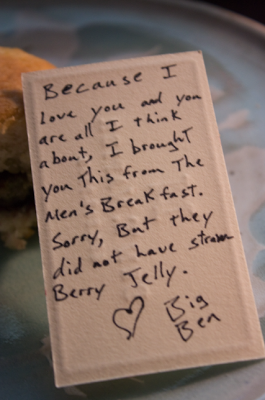 Because I
love you and you
are all I think
about, I brought
you This from The
Men's Breakfast.
Sorry, But they
did not have straw
Berry Jelly.
♡ Big
Ben